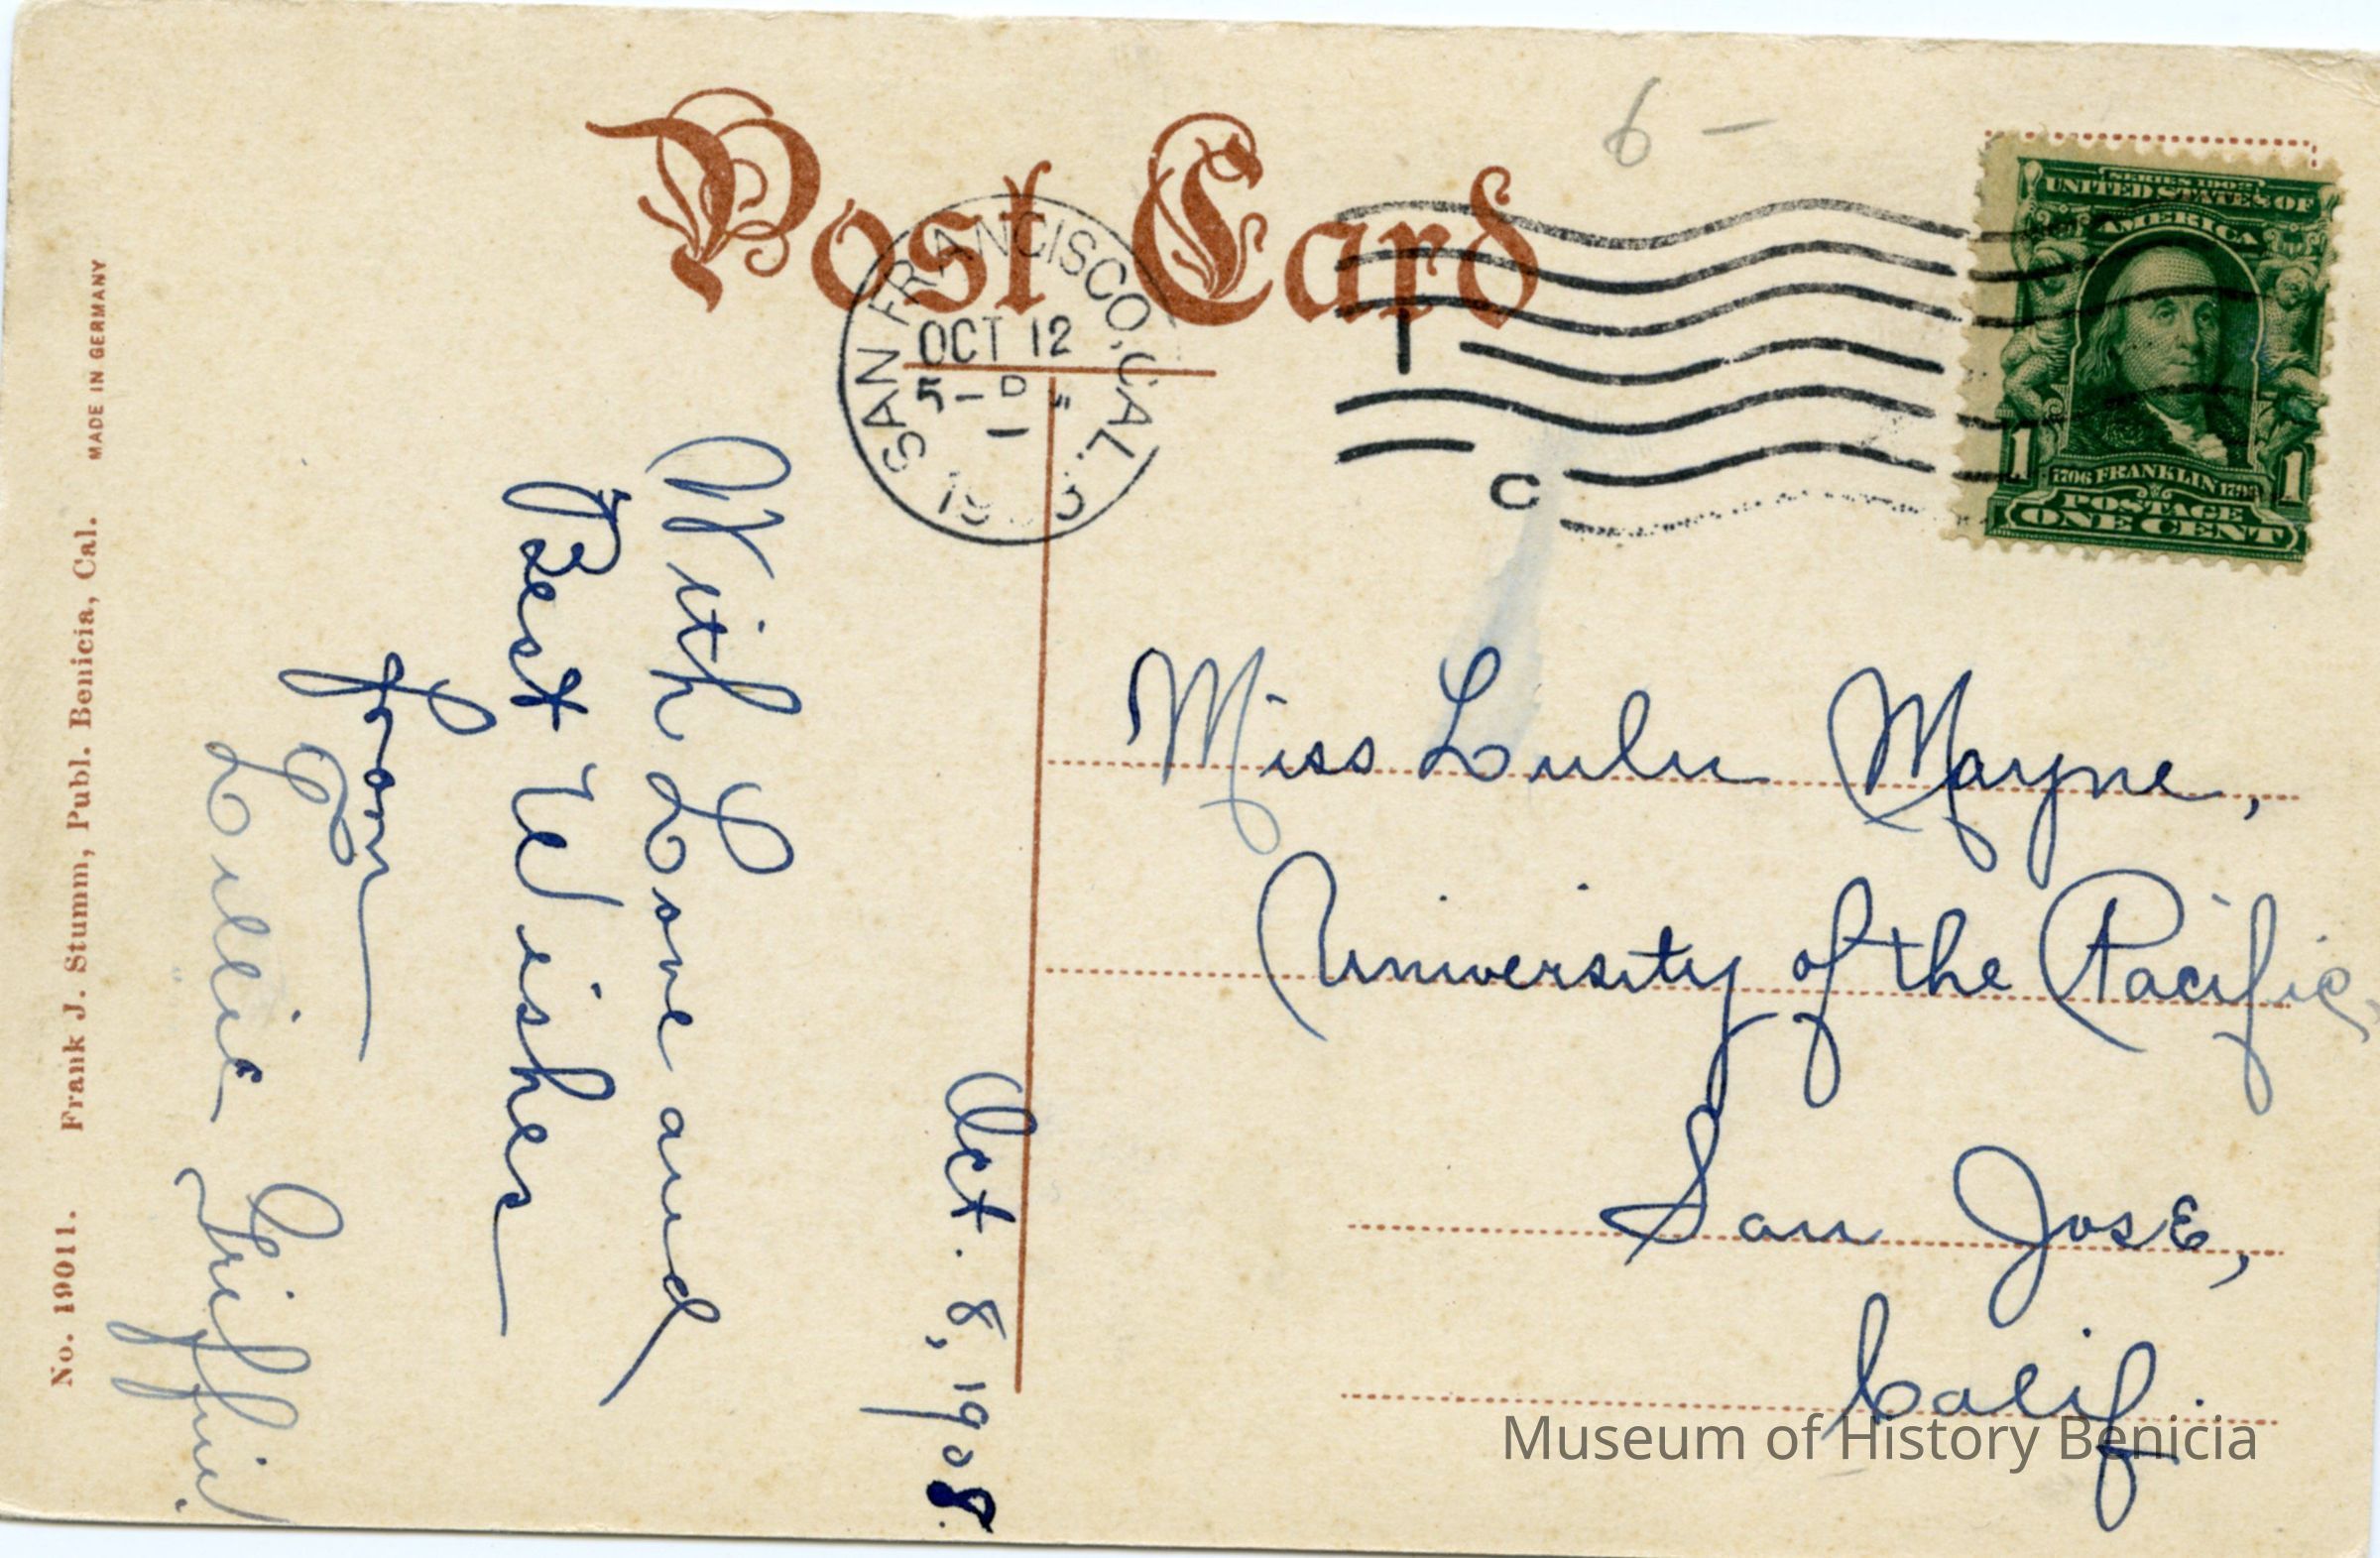 Post Card
6 -
SAN FRANCISCO, CAL.
OCT 12
5 - P
1
SERIES 1902
UNITED STATES OF
AMERICA
1 1
1706 FRANKLIN 1790
POSTAGE
ONE CENT
Oct. 8, 1908.
With Love and
Best Wishes
from
Lillie Griffin.
Miss Lulu Mayne,
University of the Pacific,
San José,
Calif.
No. 19011. Frank J. Stumm, Publ. Benicia, Cal. MADE IN GERMANY
Museum of History Benicia